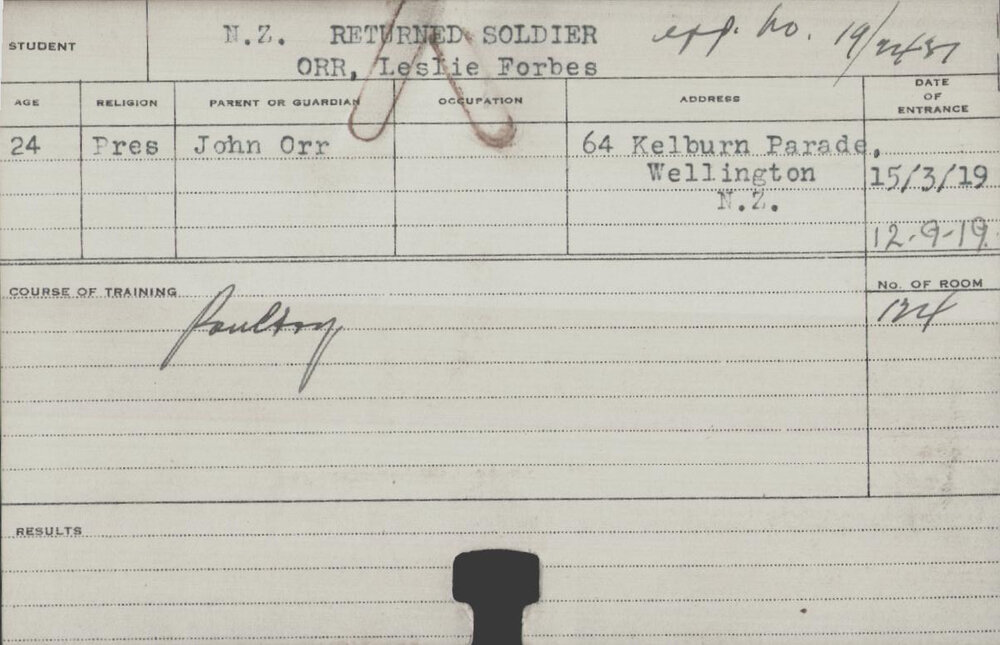 STUDENT
N.Z. RETURNED SOLDIER
app. No. 19/2437
ORR, Leslie Forbes
AGE RELIGION PARENT OR GUARDIAN OCCUPATION ADDRESS DATE OF ENTRANCE
24 Pres John Orr 64 Kelburn Parade,
Wellington 15/3/19
N.Z.
12-9-19
COURSE OF TRAINING
Poultry
No. OF ROOM
124
RESULTS